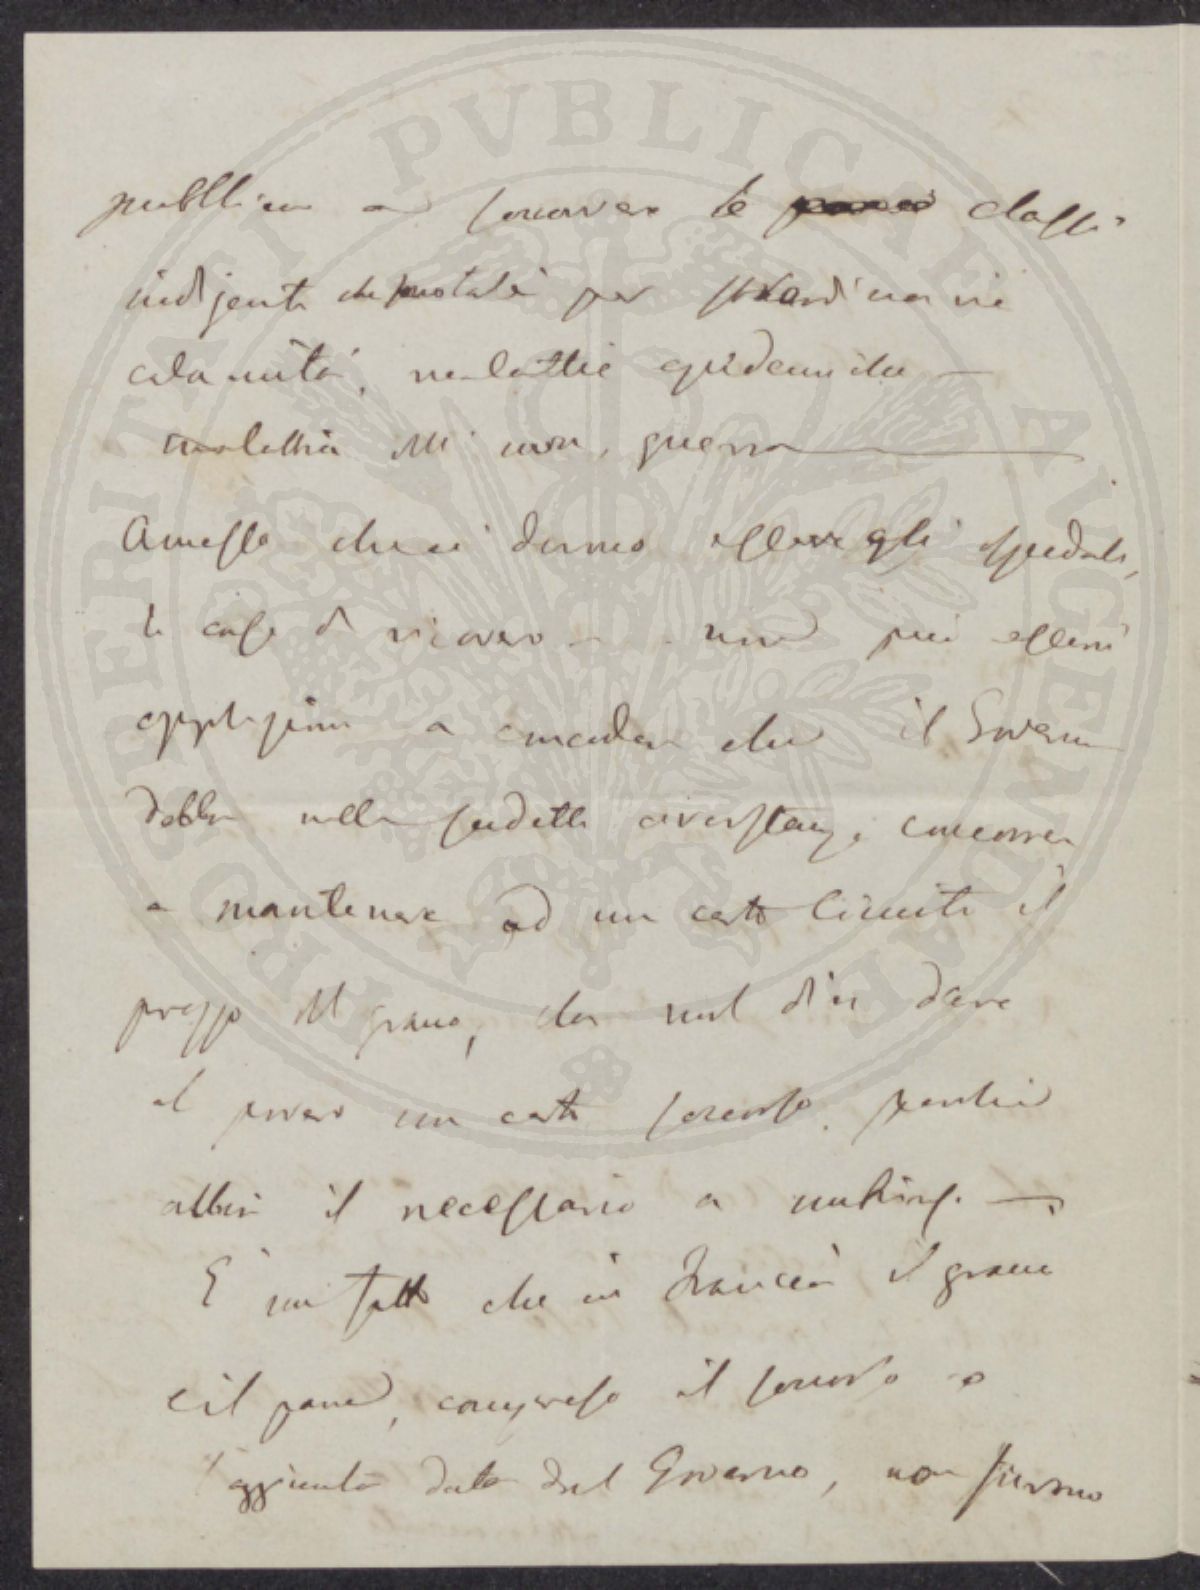 pubblica a soccorrere le classi
indigenti per straordinarie
calamità, malattie epidemiche —
malattia dell' uva, guerra —
Ammesso che ci denno essere gli spedali,
le case di ricovero non può esservi
opposizione a concedere che il Governo
debba nelle sudette circostanze concorrere
a mantenere ad un certo limite il
prezzo del grano, che vuol dire dare
al povero un certo soccorso perchè
abbia il necessario a nutrirsi. —
E' un fatto che in Francia il grano
e il pane, compreso il soccorso o
l'aggiunta data dal Governo, non furono
PVBLICAE AVGENDAE PROSPERITATI